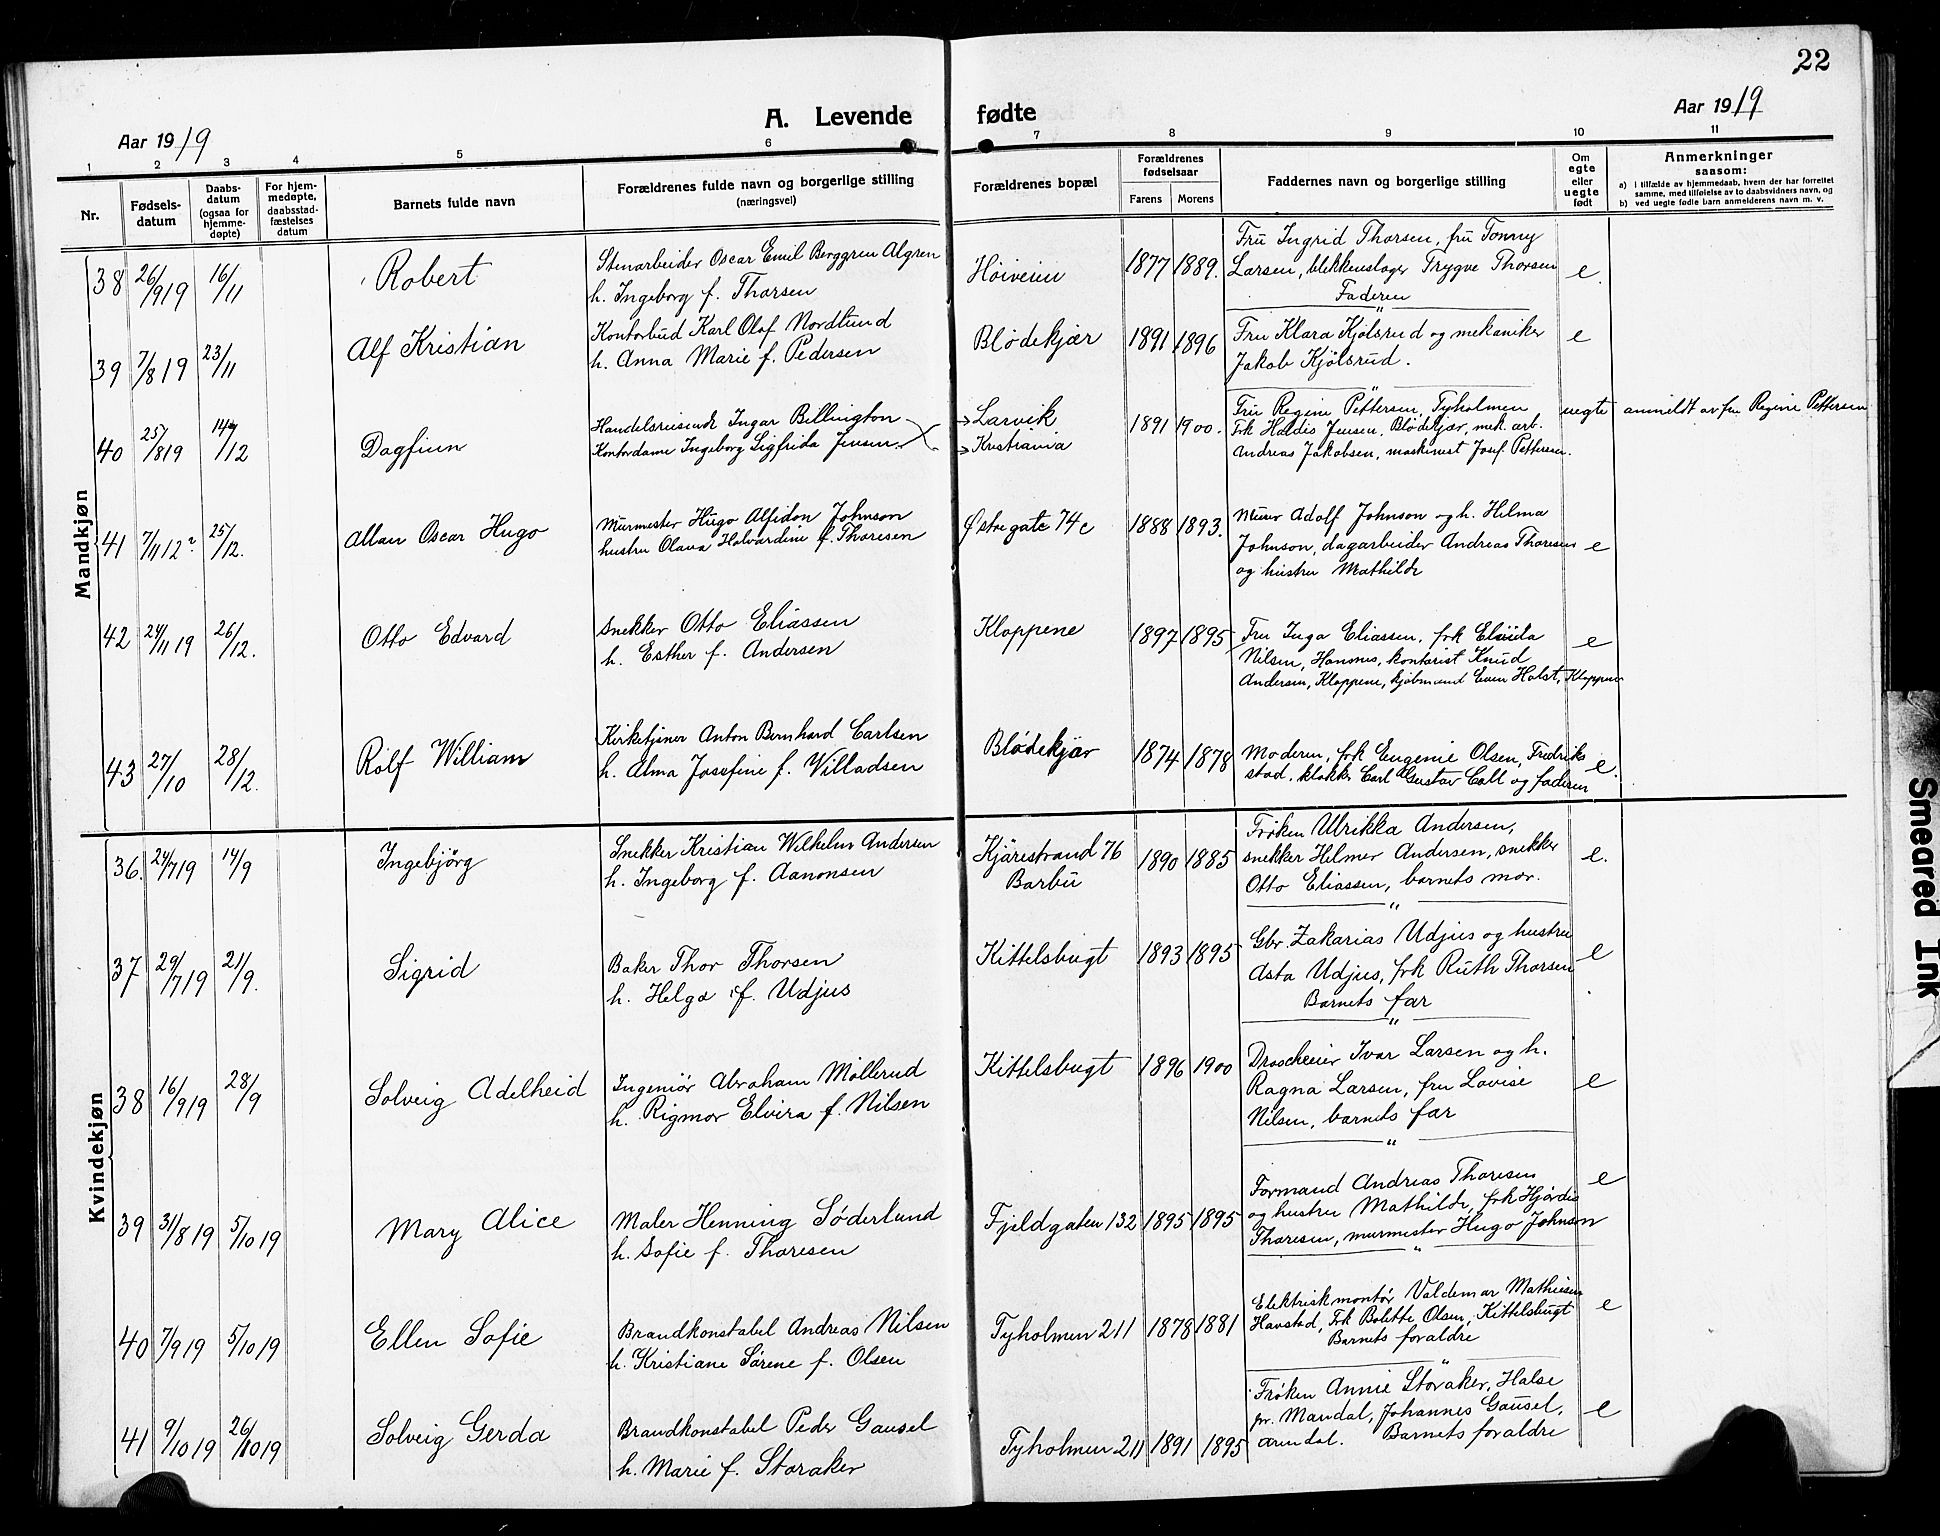 22
Aar 1919
A. Levende fødte
Aar 1919
1 2 3 4 5 6 7 8 9 10 11
Nr.
Fødsels-
datum
Daabs-
datum
(ogsaa for
hjemme-
døpte)
For hjem-
medøpte,
daabsstad-
fæstelses
datum
Barnets fulde navn
Forældrenes fulde navn og borgerlige stilling
(næringsvei)
Forældrenes bopæl
Forældrenes
fødselsaar
Farens Morens
Faddernes navn og borgerlige stilling
Om
egte
eller
uegte
født
Anmerkninger
saasom:
a) i tilfælde av hjemmedaab, hvem der har forrettet
samme, med tilføielse av to daabsvidners navn, og
b) ved uegte fødte barn anmelderens navn m. v.
Mandkjøn
38 26/9 19 16/11 Robert
Stenarbeider Oscar Emil Berggren Algren
h. Ingeborg f. Thorsen
Hoiveien 1877 1889.
Fru Ingrid Thorsen, fru Tonny
Larsen, blekkenslager Trygve Thorsen
Faderen
e.
39 7/8 19 23/11 Alf Kristian
Kontorbud Karl Olaf Nordlund
h. Anna Marie f. Pedersen
Blødekjær 1891 1896
Fru Klara Kjølsrud og mekaniker
Jakob Kjølsrud.
e
40 25/8 19 14/12 Dagfinn
Handelsreisende Ingar Billington
Kontordame Ingeborg Sigfrida Jensen
Larvik
Kristiania
1891 1900.
Fru Regine Pettersen, Tyholmen
Frk Haldis Jensen, Blødekjær, mek. arb.
Andreas Jakobsen, maskinist Josef Pettersen.
uegte anmeldt av fru Regine Pettersen
41 7/11 12 25/12. Allan Oscar Hugo
Murmester Hugo Alfidon Johnson
hustru Olava Halvardine f. Thoresen
Østregate 74c 1888 1893.
Murer Adolf Johnson og h. Helma
Johnson, dagarbeider Andreas Thoresen
og hustru Mathilde
e
42 24/11 19 26/12. Otto Edvard
Snekker Otto Eliassen
h. Esther f. Andersen
Kloppene 1897 1895
Fru Inga Eliassen, frk
Nilsen, kontorist Knud
Andersen, Kloppene, kjøbmand Even Holst, Kloppene
e
43 27/10 28/12. Rolf William
Kirketjener Anton Bernhard Carlsen
h. Alma Josefine f. Willadsen
Blødekjær 1874 1878
Moderen, frk Eugenie Olsen, Fredrik-
stad, klokker Carl Gustav Coll og faderen
e.
Kvindekjøn
36. 24/7 19 14/9 Ingebjörg
Snekker Kristian Wilhelm Andersen
h. Ingeborg f. Aanonsen
Kjærestrand 76
Barbu
1890 1885
Frøken Ulrikka Andersen,
snekker Helmer Andersen, snekker
Otto Eliassen, barnets mor.
e.
37 29/7 19 21/9. Sigrid
Baker Thor Thorsen
h. Helga f. Udjus
Kittelsbugt 1893 1895
Gbr. Zakarias Udjus og hustru
Asta Udjus, frk Ruth Thorsen
Barnets far
e
38 16/9 19 28/9 Solveig Adelheid
Ingeniør Abraham Møllerud
h. Rigmor Elvira f. Nilsen
Kittelsbugt 1896 1900
Droscheeier Ivar Larsen og h.
Ragna Larsen, fru Lovise
Nilsen, barnets far
e
39 31/8 19 5/10 19 Mary Alice
Maler Henning Söderlund
h. Sofie f. Thoresen
Fjeldgaten 132 1895 1895
Formand Andreas Thoresen
og hustru Mathilde, frk Hjørdis
Thoresen, murmester Hugo Johnson
e
40 7/9 19 5/10 19 Ellen Sofie
Brandkonstabel Andreas Nilsen
h. Kristiane Sørene f. Olsen
Tyholmen 211 1878 1881
Elektriskmontør Valdemar Mathiesen
Havstad, Frk Bolette Olsen, Kittelsbugt
Barnets forældre
e
41 9/10 19 26/10 19 Solveig Gerda
Brandkonstabel Peder Gausel
h. Marie f. Storaker
Tyholmen 211 1891 1895
Frøken Annie Storaker, Halse
pr. Mandal, Johannes Gausel,
Arendal. Barnets forældre
e
Smeared Ink